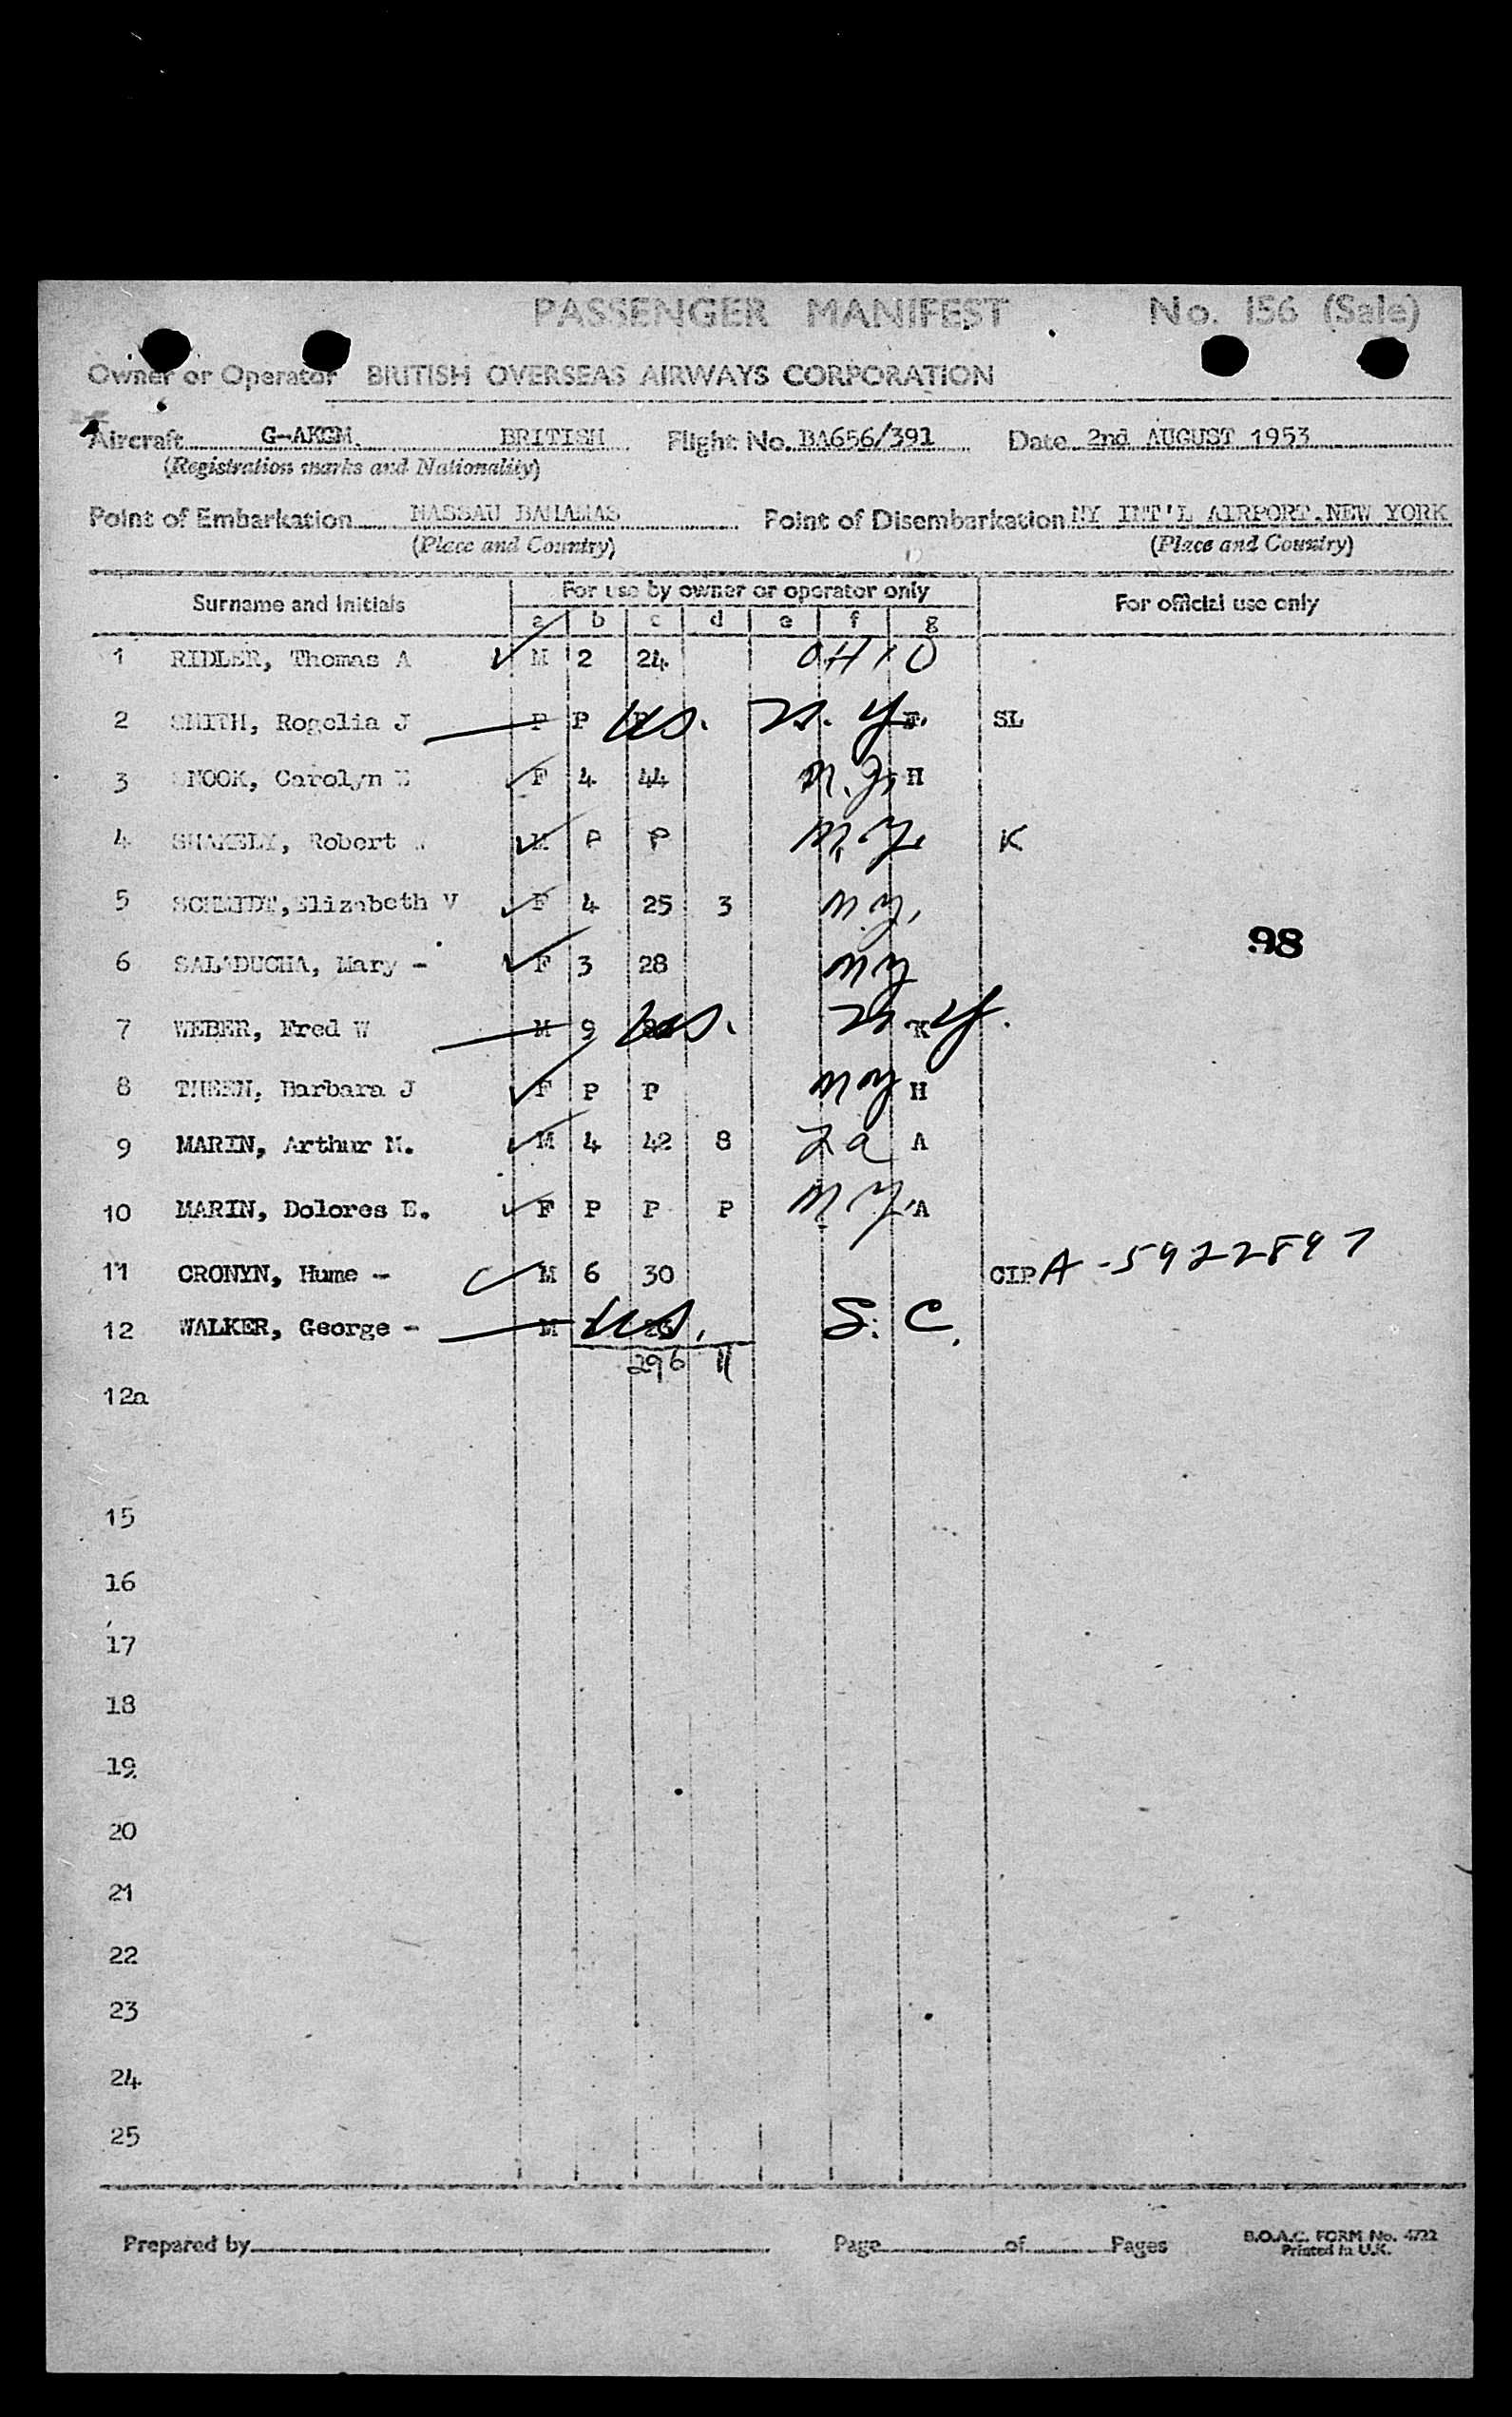 PASSENGER MANIFEST No. 156 (Sale)
Owner or Operator BRITISH OVERSEAS AIRWAYS CORPORATION
Aircraft G-AKGM. BRITISH Flight No. BA656/391 Date 2nd AUGUST 1953
(Registration marks and Nationality)
Point of Embarkation NASSAU BAHAMAS Point of Disembarkation NY INT'L AIRPORT.NEW YORK
(Place and Country) (Place and Country)
Surname and Initials For use by owner or operator only For official use only
a b c d e f g
1 RIDLER, Thomas A M 2 24 OHIO
2 SMITH, Rogelia J F P US. N.Y. SL
3 SNOOK, Carolyn F 4 44 N.Y. H
4 SHAKELY, Robert M P P N.Y. K
5 SCHMIDT, Elizabeth V F 4 25 3 N.Y.
98
6 SALADUCHA, Mary - F 3 28 NY
7 WEBER, Fred W M 9 US. N.Y. K
8 THEEN, Barbara J F P P NY H
9 MARIN, Arthur M. M 4 42 8 La A
10 MARIN, Dolores E. F P P P N.Y. A
11 CRONYN, Hume - M 6 30 CIP A-5922897
12 WALKER, George - M US. S.C.
296 11
12a
15
16
17
18
19
20
21
22
23
24
25
Prepared by Page of Pages B.O.A.C. FORM No. 4722
Printed in U.K.